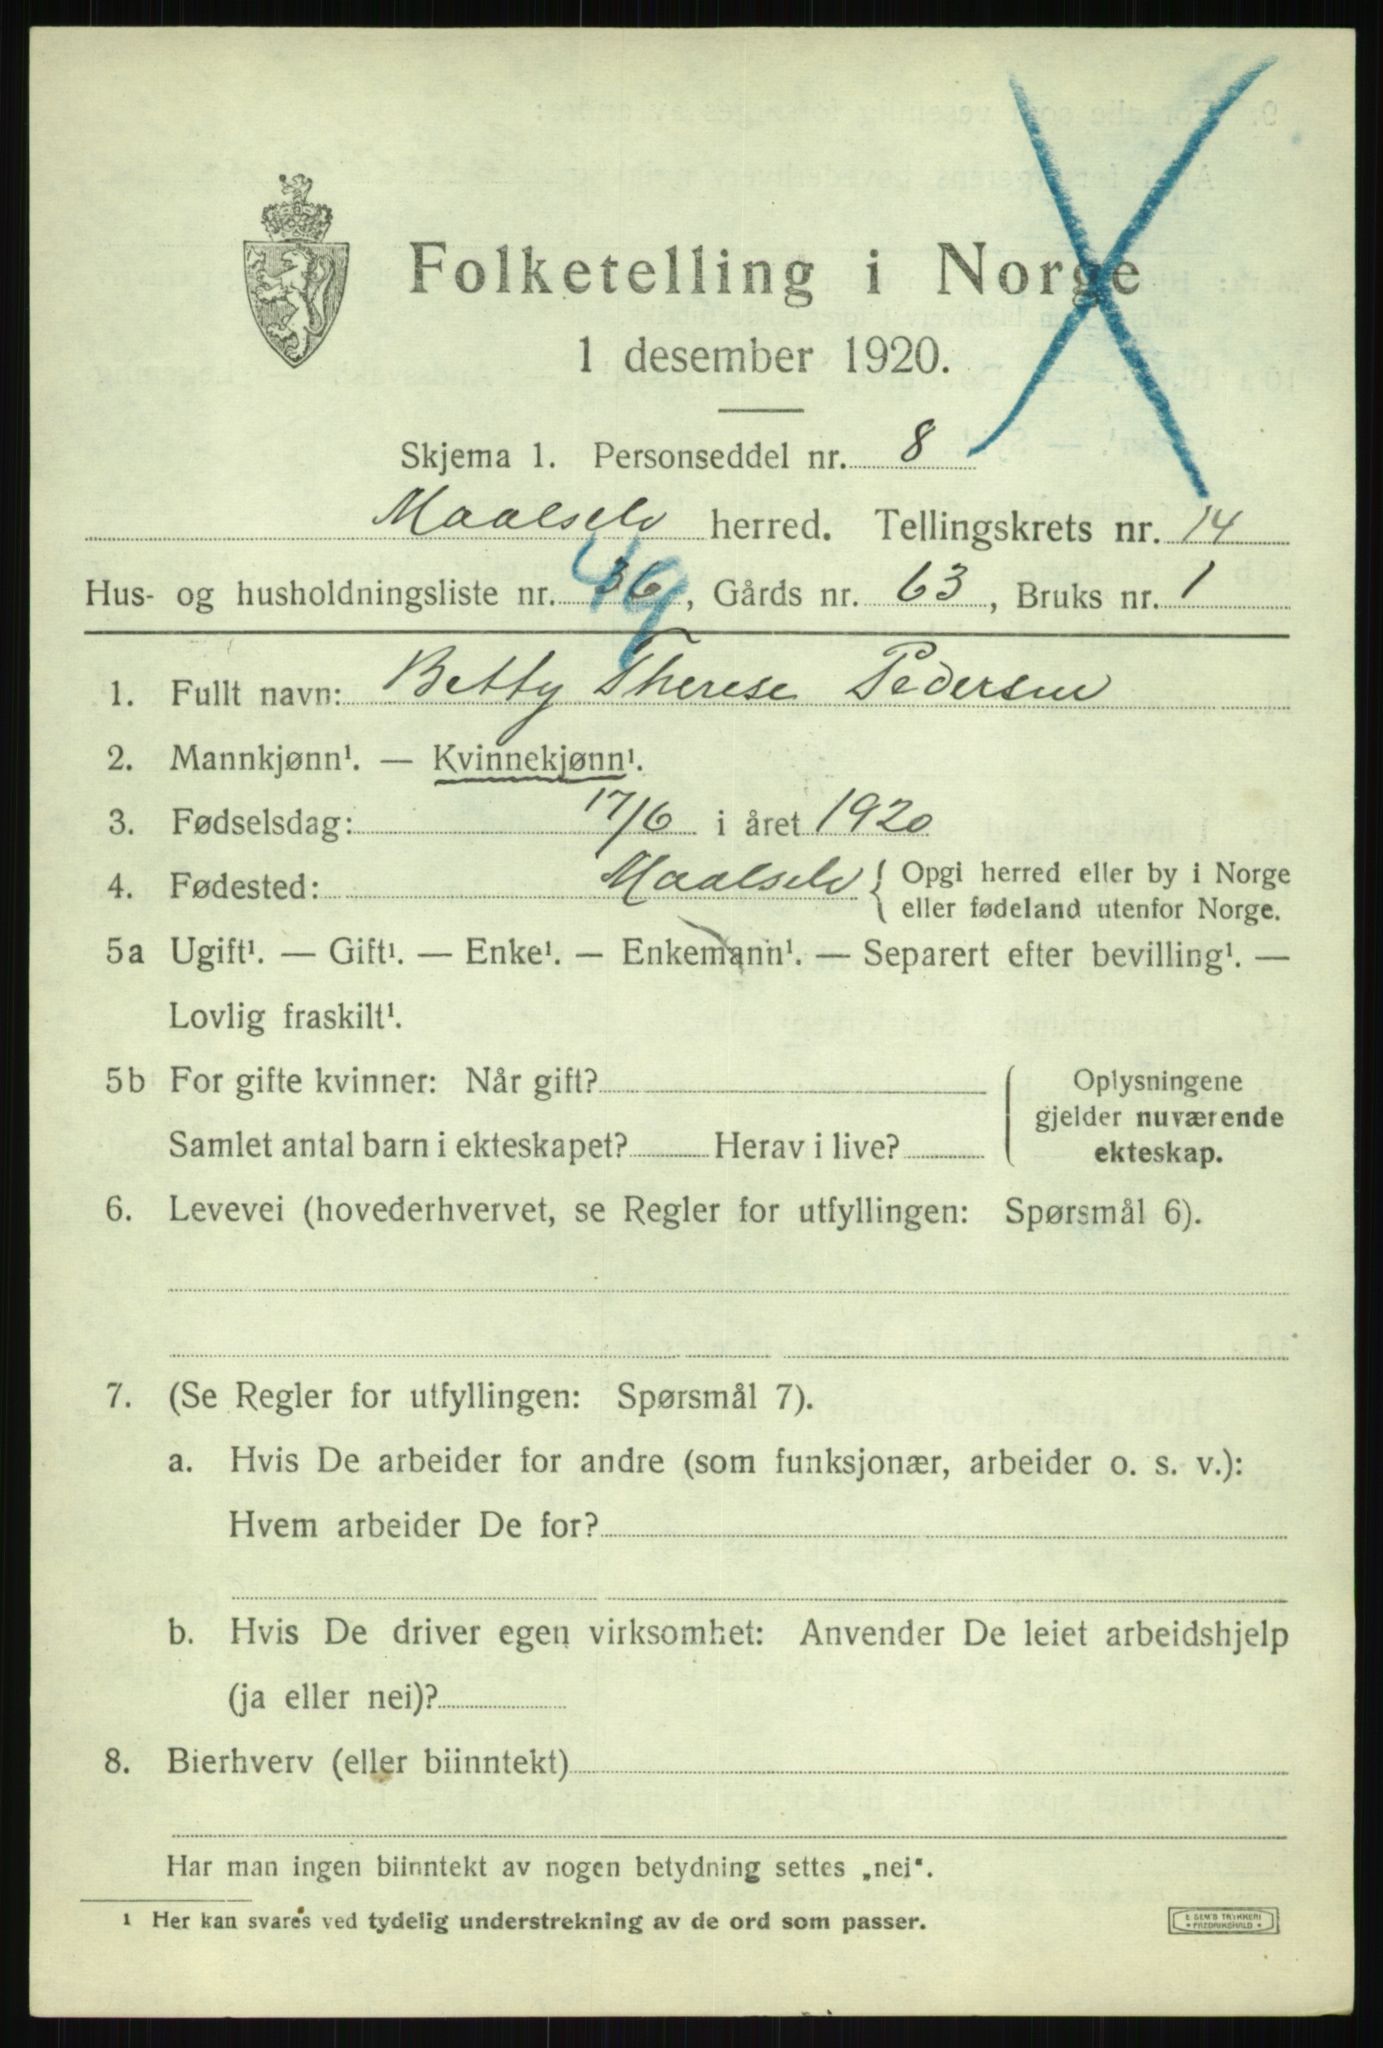 Folketelling i Norge
1 desember 1920.
Skjema 1. Personseddel nr. 8
Maalselv herred. Tellingskrets nr. 14
Hus- og husholdningsliste nr. 36, Gårds nr. 63, Bruks nr. 1
49
1. Fullt navn: Betty Therese Pedersen
2. Mannkjønn¹. — Kvinnekjønn¹.
3. Fødselsdag: 17/6 i året 1920
4. Fødested: Maalselv { Opgi herred eller by i Norge
eller fødeland utenfor Norge.
5a Ugift¹. — Gift¹. — Enke¹. — Enkemann¹. — Separert efter bevilling¹. —
Lovlig fraskilt¹.
5b For gifte kvinner: Når gift?
Samlet antal barn i ekteskapet? Herav i live?
Oplysningene
gjelder nuværende
ekteskap.
6. Levevei (hovederhvervet, se Regler for utfyllingen: Spørsmål 6).
7. (Se Regler for utfyllingen: Spørsmål 7).
a. Hvis De arbeider for andre (som funksjonær, arbeider o. s. v.):
Hvem arbeider De for?
b. Hvis De driver egen virksomhet: Anvender De leiet arbeidshjelp
(ja eller nei)?
8. Bierhverv (eller biinntekt)
Har man ingen biinntekt av nogen betydning settes „nei“.
1 Her kan svares ved tydelig understrekning av de ord som passer.
E SEM'S TRYKKERI
FREDRIKSHALD